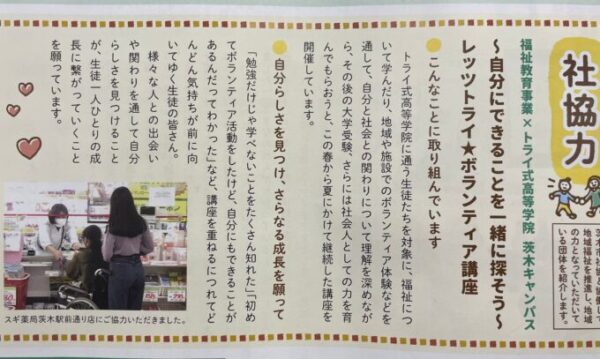 社協力
茨木市社協と協働して
地域福祉を推進し、地域
の力となっていただいて
いる団体を紹介します。
福祉教育事業×トライ式高等学院 茨木キャンパス
〜自分にできることを一緒に探そう〜
レッツトライ★ボランティア講座
●こんなことに取り組んでいます
トライ式高等学院に通う生徒たちを対象に、福祉につ
いて学んだり、地域や施設でのボランティア体験などを
通して、自分と社会との関わりについて理解を深めなが
ら、その後の大学受験、さらには社会人としての力を育
んでもらおうと、この春から夏にかけて継続した講座を
開催しています。
●自分らしさを見つけ、さらなる成長を願って
「勉強だけじゃ学べないことをたくさん知れた」「初め
てボランティア活動をしたけど、自分にもできることが
あるんだってわかった」など、講座を重ねるにつれてど
んどん気持ちが前に向
いてゆく生徒の皆さん。
様々な人との出会い
や関わりを通して自分
らしさを見つけること
が、生徒一人ひとりの成
長に繋がっていくこと
を願っています。
スギ薬局茨木駅前通り店にご協力いただきました。